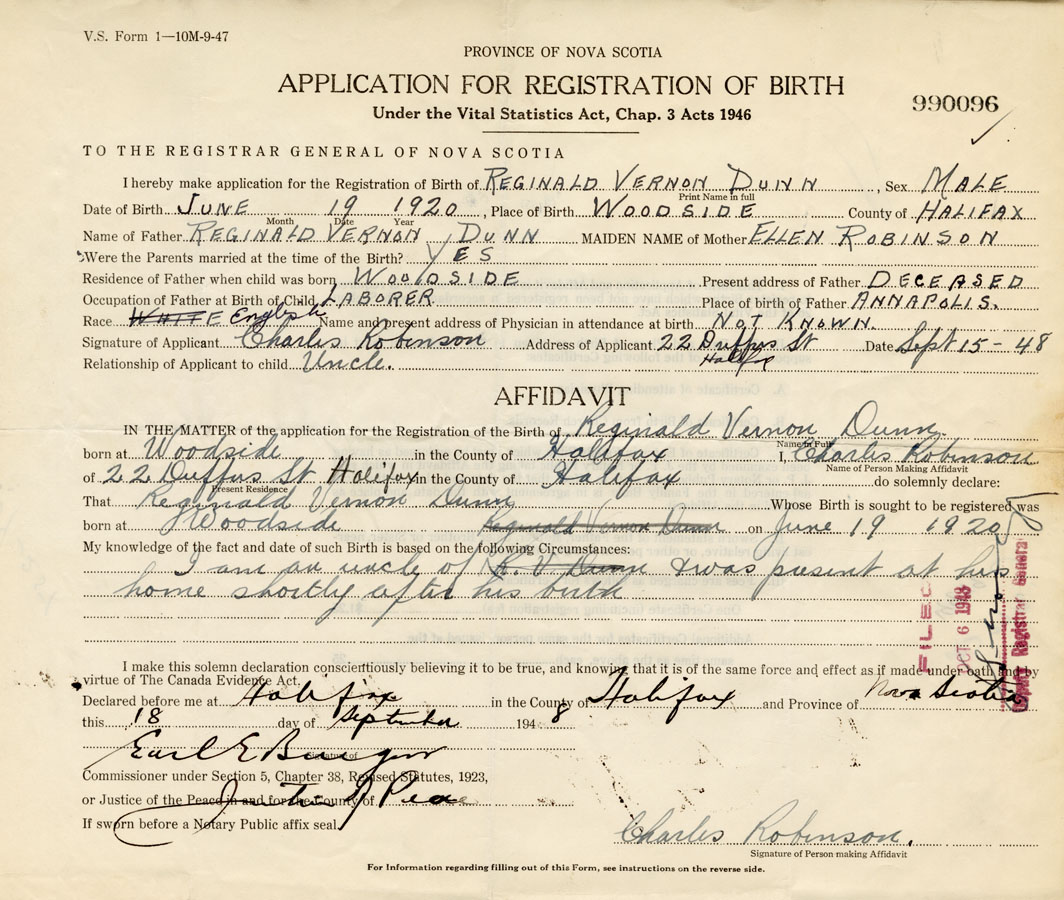 V.S. Form 1—10M-9-47
PROVINCE OF NOVA SCOTIA
APPLICATION FOR REGISTRATION OF BIRTH
990096
Under the Vital Statistics Act, Chap. 3 Acts 1946
TO THE REGISTRAR GENERAL OF NOVA SCOTIA
I hereby make application for the Registration of Birth of REGINALD VERNON DUNN, Sex MALE
Print Name in full
Date of Birth JUNE 19 1920, Place of Birth WOODSIDE County of HALIFAX
Month Date Year
Name of Father REGINALD VERNON DUNN MAIDEN NAME of Mother ELLEN ROBINSON
Were the Parents married at the time of the Birth? YES
Residence of Father when child was born WOODSIDE Present address of Father DECEASED
Occupation of Father at Birth of Child LABORER Place of birth of Father ANNAPOLIS.
Race WHITE English Name and present address of Physician in attendance at birth NOT KNOWN.
Signature of Applicant Charles Robinson Address of Applicant 22 Duffus St Date Sept 15-48
Halifx
Relationship of Applicant to child Uncle.
AFFIDAVIT
IN THE MATTER of the application for the Registration of the Birth of Reginald Vernon Dunn
Name in Full
born at Woodside in the County of Halifax I, Charles Robinson
Name of Person Making Affidavit
of 22 Duffus St Halifax in the County of Halifax do solemnly declare:
Present Residence
That Reginald Vernon Dunn Whose Birth is sought to be registered was
born at Woodside Reginald Vernon Dunn on June 19 1920
My knowledge of the fact and date of such Birth is based on the following Circumstances:
I am an uncle of R. V Dunn & was present at his
home shortly after his birth
FILED
OCT 6 1948
Registrar General
I make this solemn declaration conscientiously believing it to be true, and knowing that it is of the same force and effect as if made under oath and by
virtue of The Canada Evidence Act.
Declared before me at Halifax in the County of Halifax and Province of Nova Scotia
this 18 day of September 1948
Earl E
Signature of
Commissioner under Section 5, Chapter 38, Revised Statutes, 1923,
or Justice of the Peace in and for the County of Justice of Peace
If sworn before a Notary Public affix seal.
Charles Robinson.
Signature of Person making Affidavit
For Information regarding filling out of this Form, see instructions on the reverse side.